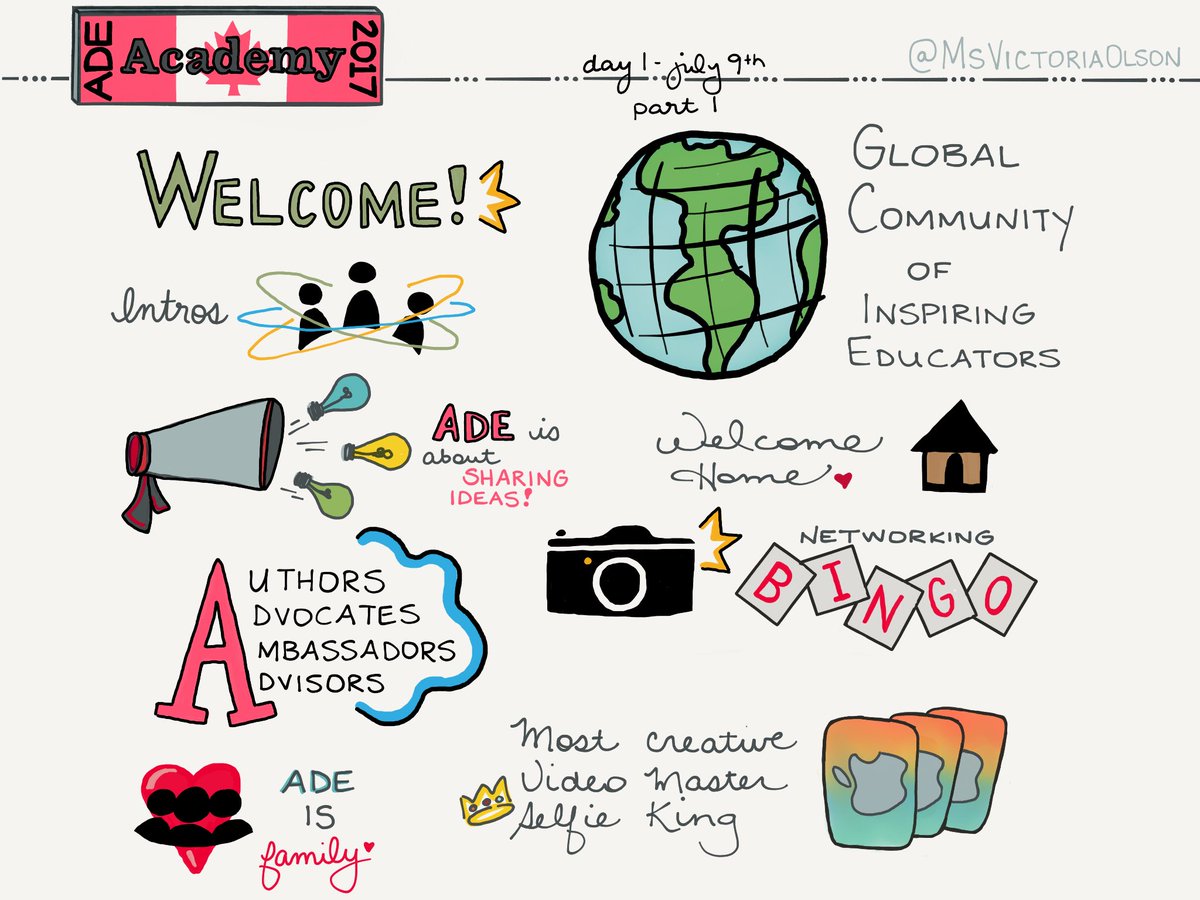 ADE Academy 2017
day 1 - july 9th
part 1
@MsVictoriaOlson
WELCOME!
Intros
GLOBAL
COMMUNITY
OF
INSPIRING
EDUCATORS
ADE is
about
SHARING
IDEAS!
Welcome
Home
NETWORKING
BINGO
AUTHORS
ADVOCATES
AMBASSADORS
ADVISORS
ADE
IS
family
Most creative
Video Master
Selfie King